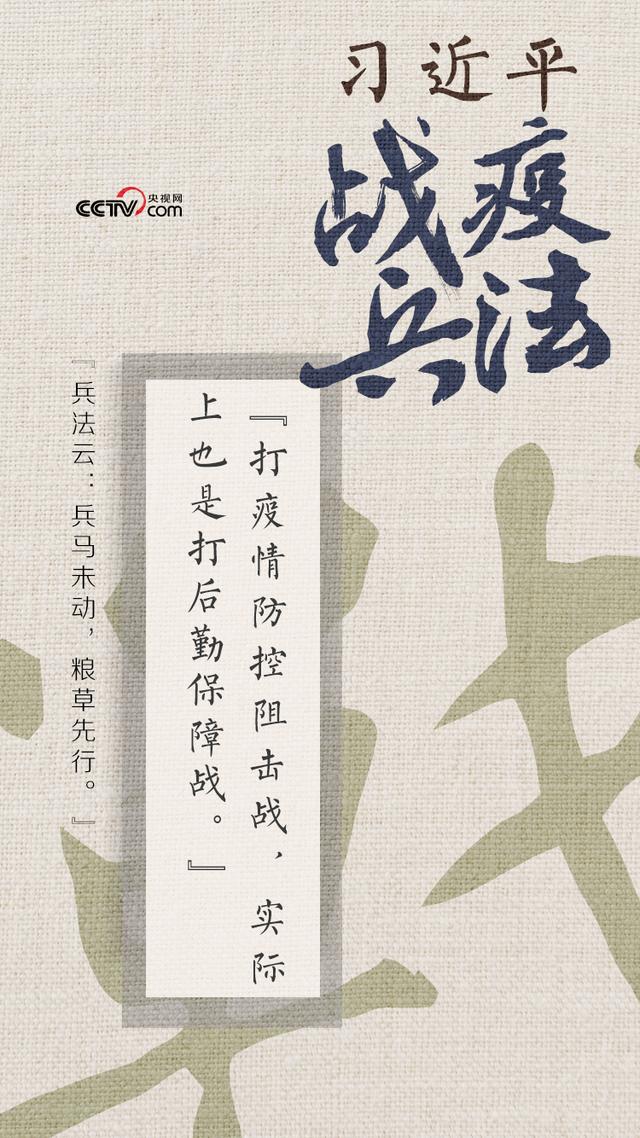 习近平
战疫
兵法
CCTV.com
央视网
『打疫情防控阻击战，实际
上也是打后勤保障战。』
『兵法云：兵马未动，粮草先行。』